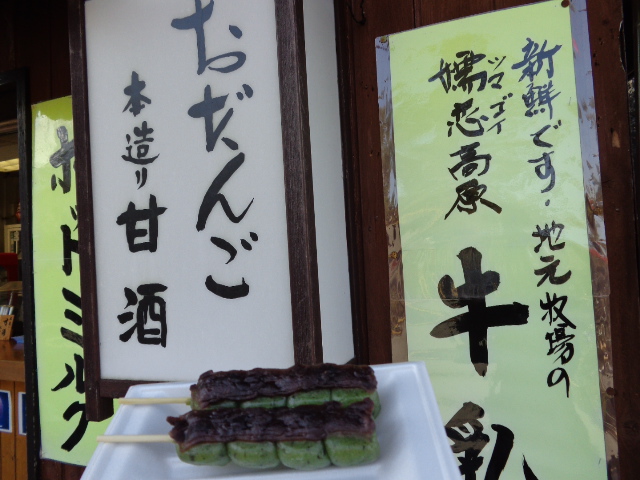 新鮮です・地元牧場の
嬬恋高原
ツマゴイ
牛乳
おだんご
本造り甘酒
ホットミルク